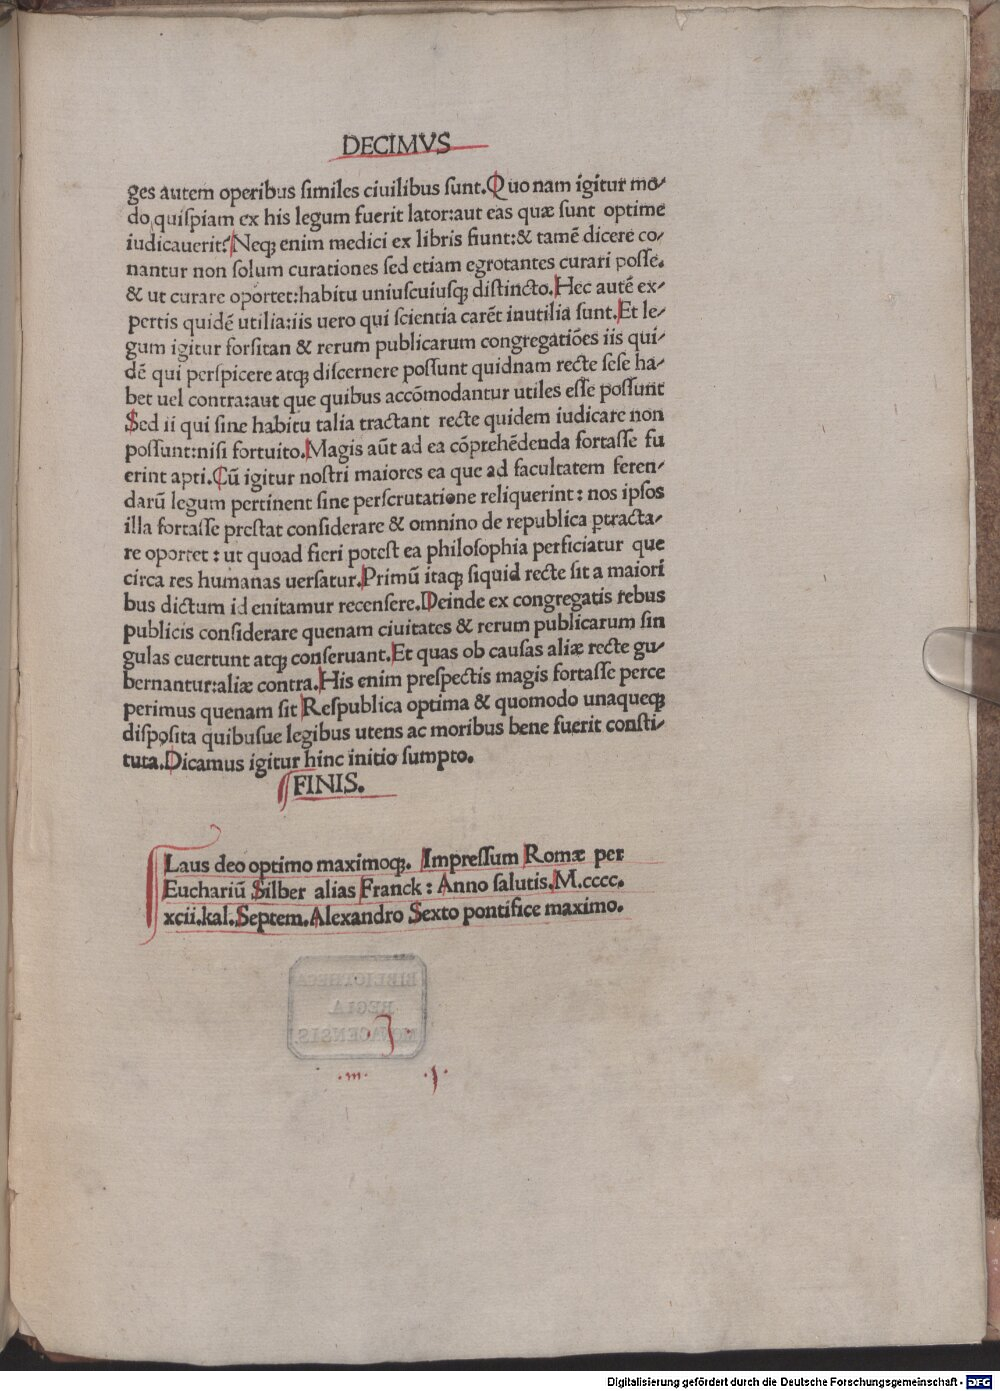 DECIMVS
ges autem operibus similes ciuilibus sunt. Quo nam igitur mo-
do quispiam ex his legum fuerit lator: aut eas quæ sunt optime
iudicauerit? Neqꝫ enim medici ex libris fiunt: & tamē dicere co-
nantur non solum curationes sed etiam egrotantes curari posse.
& ut curare oportet: habitu uniuscuiusqꝫ distincto. Hec autē ex-
pertis quidē utilia: iis uero qui scientia carēt inutilia sunt. Et le-
gum igitur forsitan & rerum publicarum congregatiões iis qui-
dē qui perspicere atqꝫ discernere possunt quidnam recte sese ha-
bet uel contra: aut que quibus accõmodantur utiles esse possunt
Sed ii qui sine habitu talia tractant recte quidem iudicare non
possunt: nisi fortuito. Magis aūt ad ea cõprehēdenda fortasse fu
erint apti. Cū igitur nostri maiores ea que ad facultatem feren-
darū legum pertinent sine perscrutatione reliquerint: nos ipsos
illa fortasse prestat considerare & omnino de republica ꝑtracta-
re oportet: ut quoad fieri potest ea philosophia perficiatur que
circa res humanas uersatur. Primū itaqꝫ siquid recte sit a maiori
bus dictum id enitamur recensere. Deinde ex congregatis rebus
publicis considerare quenam ciuitates & rerum publicarum sin
gulas euertunt atqꝫ conseruant. Et quas ob causas aliæ recte gu-
bernantur: aliæ contra. His enim prespectis magis fortasse perce
perimus quenam sit Respublica optima & quomodo unaqueqꝫ
disposita quibusue legibus utens ac moribus bene fuerit consti-
tuta. Dicamus igitur hinc initio sumpto.
FINIS.
Laus deo optimo maximoqꝫ. Impressum Romæ per
Euchariū Silber alias Franck: Anno salutis. M.cccc.
xcii. kal. Septem. Alexandro Sexto pontifice maximo.
BIBLIOTHECA
REGIA
MONACENSIS.
.m.
Digitalisierung gefördert durch die Deutsche Forschungsgemeinschaft - DFG